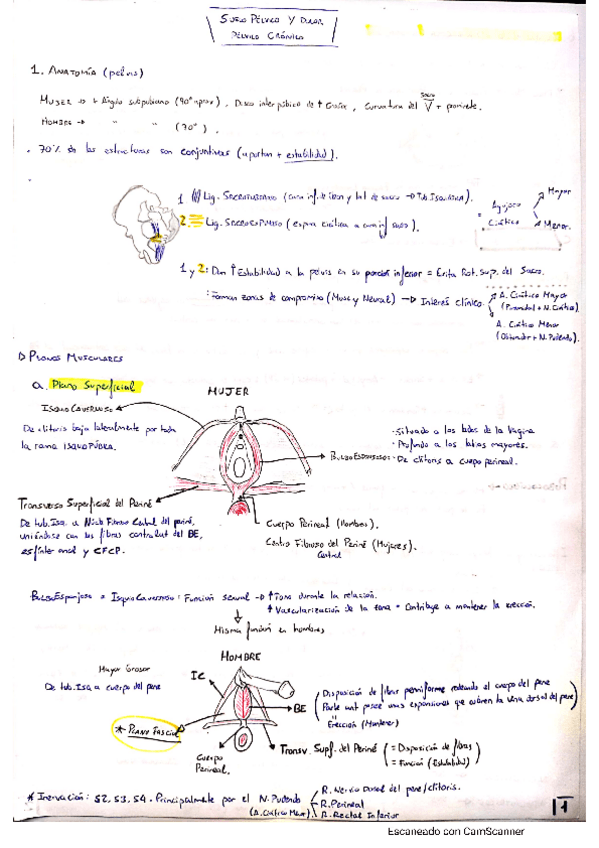 Suelo Pélvico y Dolor
Pélvico Crónico
1. Anatomía (pelvis)
Mujer → + Ángulo subpubiano (90° aprox). Disco interpúbico de ↑ Grosor, Curvatura del Sacro + prominente.
Hombre → " " (70°).
. 70% de las estructuras son conjuntivas (aportan + estabilidad).
1 Lig. Sacrotuberoso (cara inf. de ilion y lat de sacro → Tub Isquiática).
2. Lig. Sacroespinoso (espina ciática a cara inf sacro).
Agujero Ciático
Mayor
Menor.
1 y 2: Dan ↑ Estabilidad a la pelvis en su porción inferior = Evita Rot. Sup. del Sacro.
: Forman zonas de compromiso (Musc y Neural) → Interés clínico.
A. Ciático Mayor
(Piramidal + N. Ciático)
A. Ciático Menor
(Obturador + N. Pudendo).
Planos Musculares
a. Plano Superficial
MUJER
Isquio Cavernoso
De clítoris baja lateralmente por toda
la rama isquiopúbica.
Bulbo Esponjoso
· Situado a los lados de la Vagina
· Profundo a los labios mayores.
· De clítoris a cuerpo perineal.
Transverso Superficial del Periné
De tub. Isq. a Núcleo Fibroso Central del periné,
uniéndose con las fibras contralat del BE,
esfínter anal y CFCP.
Cuerpo Perineal (Hombres).
Centro Fibroso del Periné (Mujeres).
Central
Bulbo Esponjoso = Isquio Cavernoso: Función sexual → ↑ Tono durante la relación.
↑ Vascularización de la zona = Contribuye a mantener la erección.
Misma función en hombres
HOMBRE
Mayor Grosor
De tub. Isq a cuerpo del pene
IC
BE
Disposición de fibras penniforme rodeando el cuerpo del pene
Parte ant posee unas expansiones que cubren la vena dorsal del pene
Erección (Mantener)
* Plano Fascial
Cuerpo
Perineal.
Transv. Supf. del Periné
= Disposición de fibras
= Función (Estabilidad)
* Inervación: S2, S3, S4. Principalmente por el N. Pudendo
(A. Ciático Menor)
R. Nervio Dorsal del pene/clítoris.
R. Perineal
R. Rectal Inferior
1
Escaneado con CamScanner